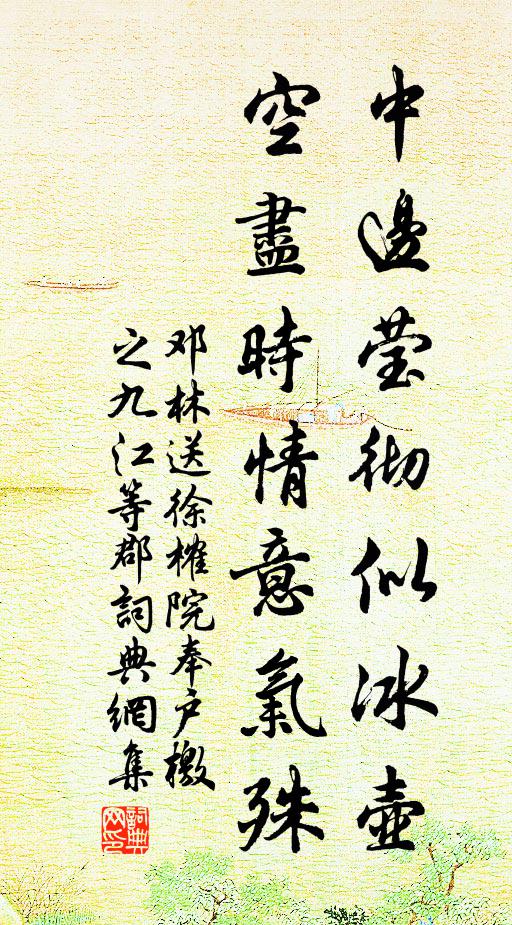 中邊莹彻似冰壺
空盡時情意氣殊
邓林送徐榷院奉户檄
之九江等郡詞典網集
詞典网印